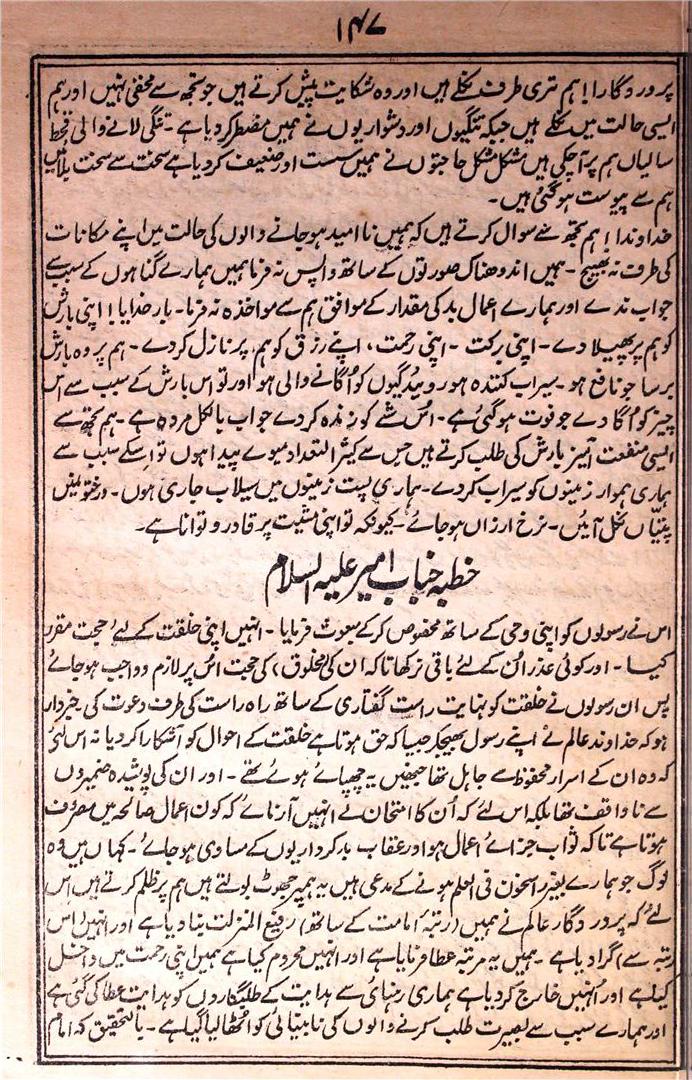 ۱۴۷
پروردگارا! ہم تری طرف نکلے ہیں اور وہ شکایت پیش کرتے ہیں جو تجھ سے مخفی نہیں اور ہم
ایسی حالت میں نکلے ہیں جبکہ تنگیوں اور دشواریوں نے ہمیں مضطر کر دیا ہے۔ تنگی لانے والی قحط
سالیاں ہم پر آچکی ہیں مشکل مشکل حاجتوں نے ہمیں سست اور ضعیف کر دیا ہے سخت سے سخت بلائیں
ہم سے پیوست ہوگئی ہیں۔
خداوندا! ہم تجھ سے سوال کرتے ہیں کہ ہمیں ناامید ہو جانے والوں کی حالت میں اپنے مکانات
کی طرف نہ بھیج۔ ہمیں اندوھناک صورتوں کے ساتھ واپس نہ فرما ہمیں ہمارے گناہوں کے سبب سے
جواب ندے اور ہمارے اعمال بد کی مقدار کے موافق ہم سے مواخذہ نہ فرما۔ بار خدایا! اپنی بارش
کو ہم پر پھیلا دے۔ اپنی برکت۔ اپنی رحمت، اپنے رزق کو ہم پر نازل کر دے۔ ہم پر وہ بارش
برسا جو نافع ہو۔ سیراب کنندہ ہو روئیدگیوں کو اگانے والی ہو اور تو اس بارش کے سبب سے اس
چیز کو اگا دے جو فوت ہوگئی ہے۔ اُس شے کو زندہ کر دے جو اب بالکل مردہ ہے۔ ہم تجھ سے
ایسی منفعت آمیز بارش کی طلب کرتے ہیں جس سے کثیر التعداد میوے پیدا ہوں تو اسکے سبب سے
ہماری ہموار زمینوں کو سیراب کر دے۔ ہماری پست زمینوں میں سیلاب جاری ہوں۔ درختومنیں
پتیّاں نکل آئیں۔ نرخ ارزاں ہو جائے۔ کیونکہ تو اپنی مشیت پر قادر و توانا ہے۔
خطبہ جناب امیر علیہ السلام
اس نے رسولوں کو اپنی وحی کے ساتھ مخصوص کر کے مبعوث فرمایا۔ انہیں اپنی خلقت کے لئے حجت مقرر
کیا۔ اور کوئی عذر اُن کے لئے باقی نرکھا تاکہ ان کی (مخلوق) کی حجت اُس پر لازم و واجب ہو جائے
پس ان رسولوں نے خلقت کو نہایت راست گفتاری کے ساتھ راہ راست کی طرف دعوت کی خبردار
ہو کہ خداوند عالم نے اپنے رسول بھیجکر جیسا کہ حق ہوتا ہے خلقت کے احوال کو آشکارا کر دیا نہ اس لئی
کہ وہ ان کے اسرار محفوظ سے جاہل تھا جنھیں یہ چھپائے ہوئے تھے۔ اور ان کی پوشیدہ ضمیروں
سے ناواقف تھا بلکہ اس لئے کہ اُن کا امتحان لے انہیں آزمائے کہ کون اعمال صالحہ میں مصروف
ہوتا ہے تاکہ ثواب جزائے اعمال ہو اور عقاب بدکرداریوں کے مساوی ہو جائے۔ کہاں ہیں وہ
لوگ جو ہمارے بغیر راسخون فی العلم ہونے کے مدعی ہیں یہ ہمپر جھوٹ بولتے ہیں ہم پر ظلم کرتے ہیں اس
لئے کہ پروردگار عالم نے ہمیں (رتبۂ امامت کے ساتھ) رفیع المنزلت بنا دیا ہے اور انہیں (اس
رتبہ سے) گرا دیا ہے۔ ہمیں یہ مرتبہ عطا فرمایا ہے اور انہیں محروم کیا ہے ہمیں اپنی رحمت میں داخل
کیا ہے اور اُنہیں خارج کر دیا ہے ہماری رہنمائی سے ہدایت کے طلبگاروں کو ہدایت عطا کی گئی ہے
اور ہمارے سبب سے بصیرت طلب کرنے والوں کی نابینائی کو اٹھا لیا گیا ہے۔ بالتحقیق کہ امام